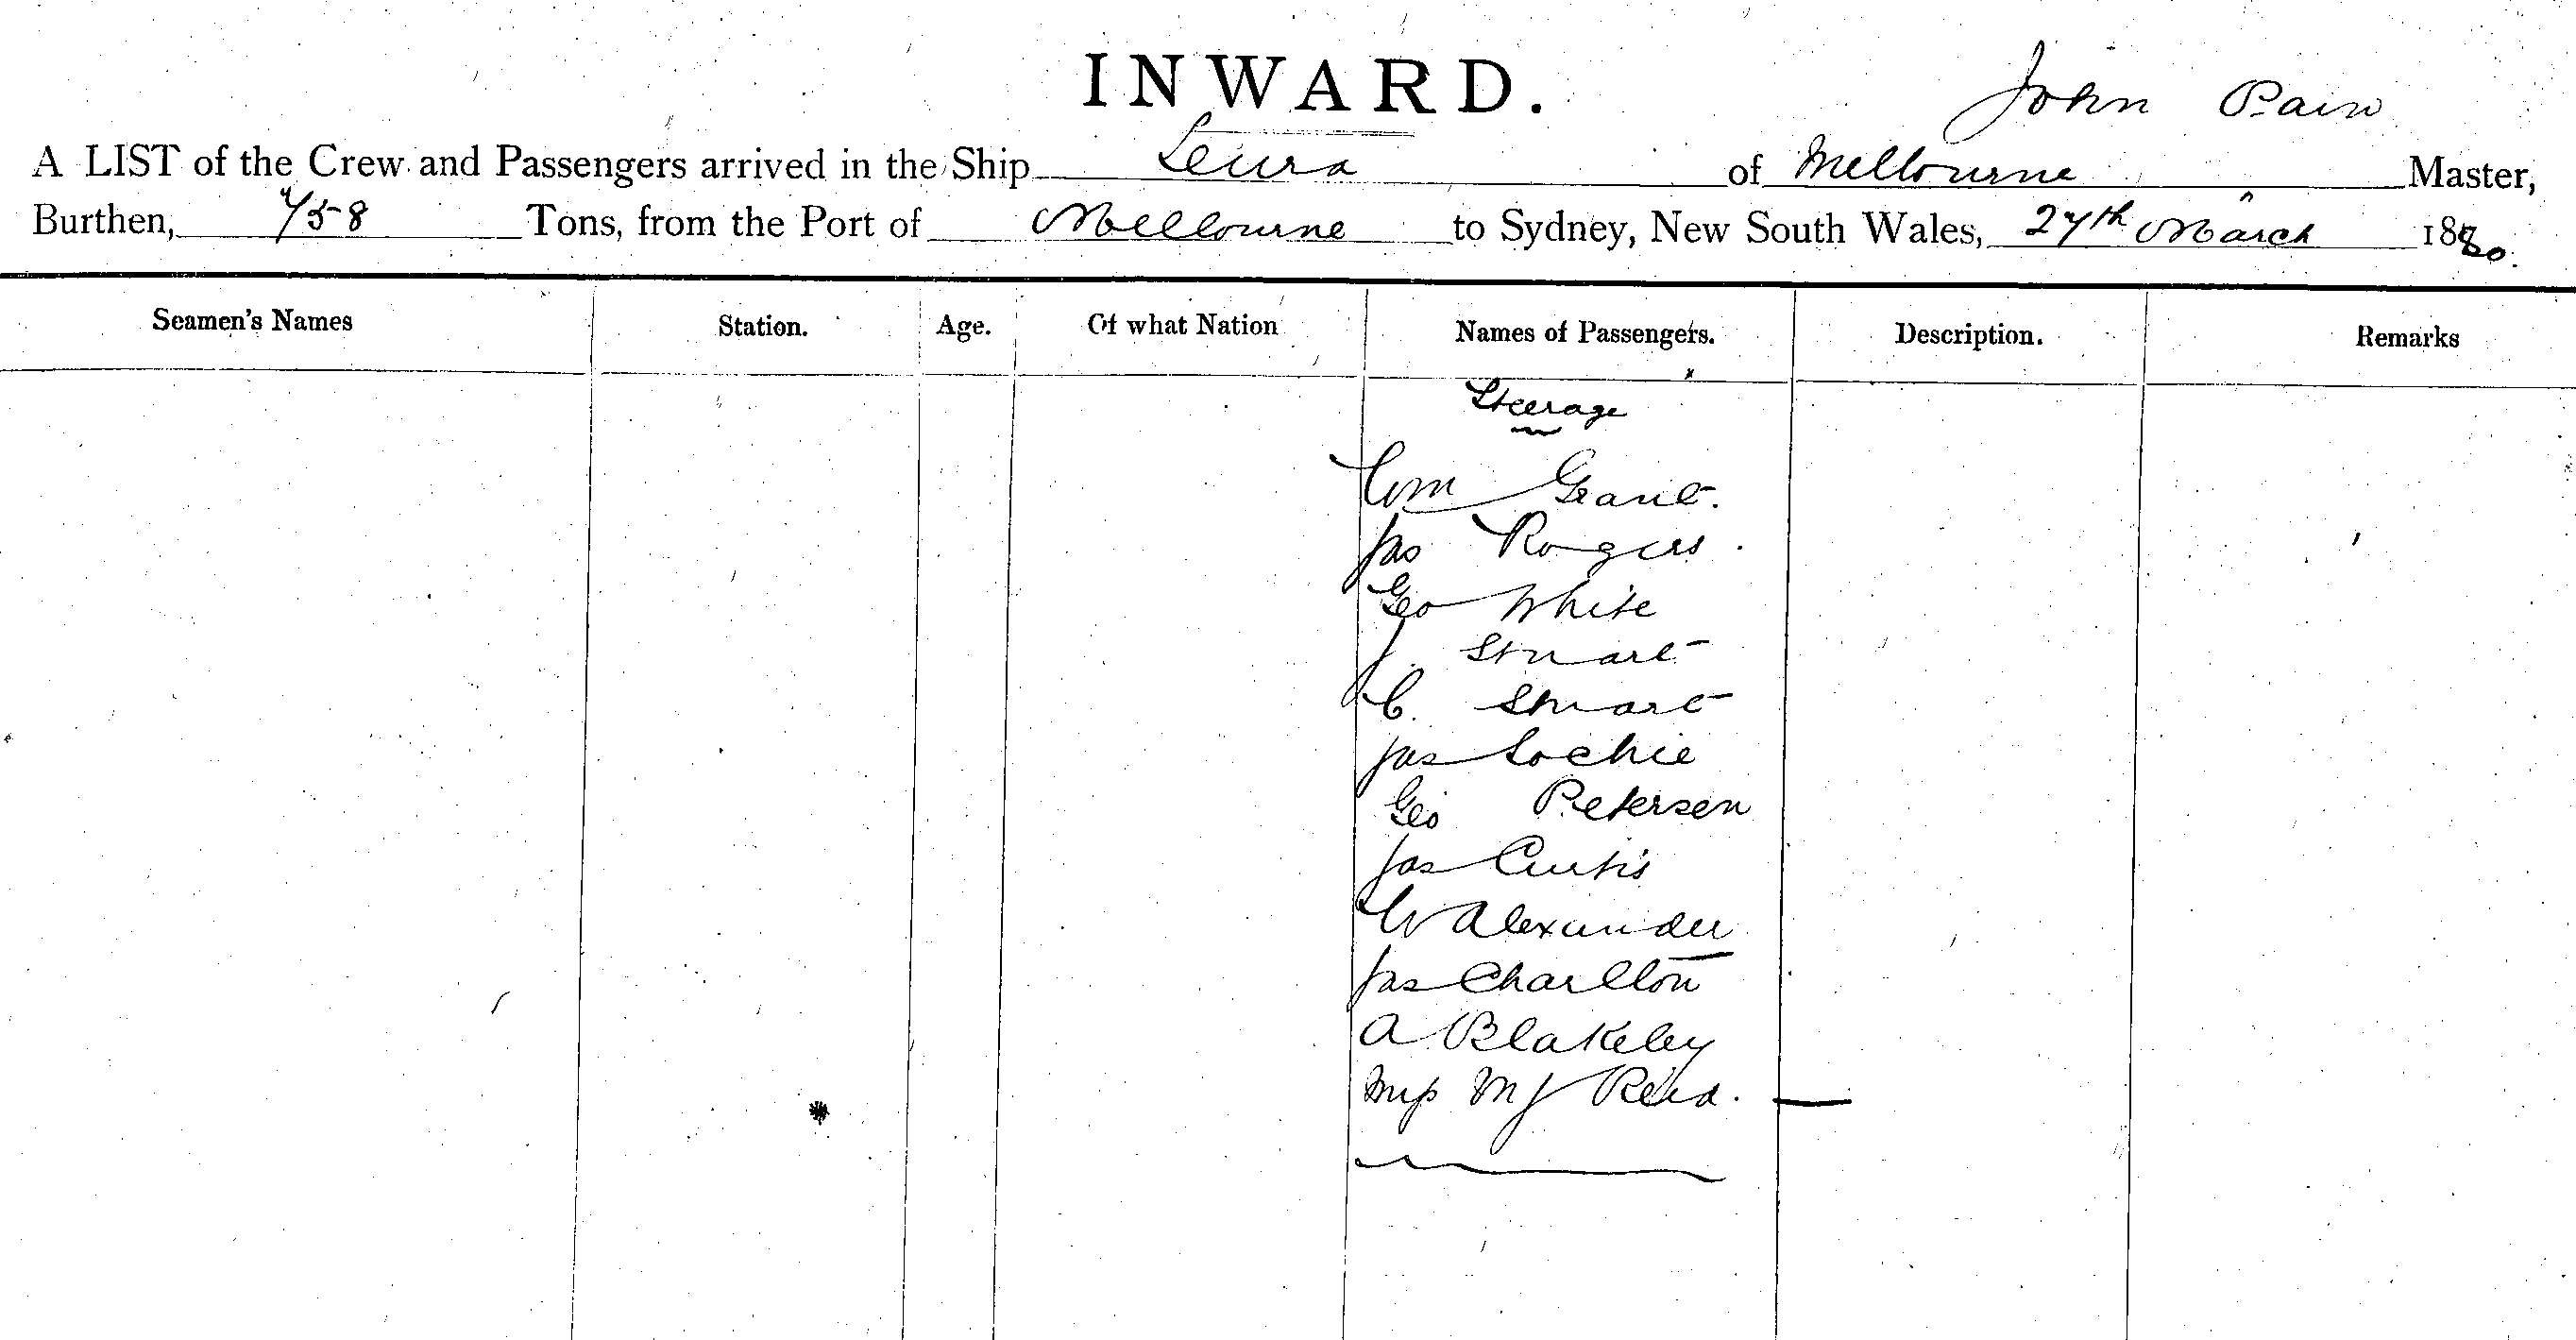 INWARD.
John Pain
A LIST of the Crew and Passengers arrived in the Ship Leura of Melbourne Master,
Burthen, 758 Tons, from the Port of Melbourne to Sydney, New South Wales, 27th March 1880.
Seamen's Names Station. Age. Of what Nation Names of Passengers. Description. Remarks
Steerage
Wm Grant.
Jas Rogers.
Geo White
J. Stuart
C. Stuart
Jas Lochie
Geo Petersen
Jas Curtis
W Alexander
Jas Charlton
A Blakeley
Miss MJ Reid.